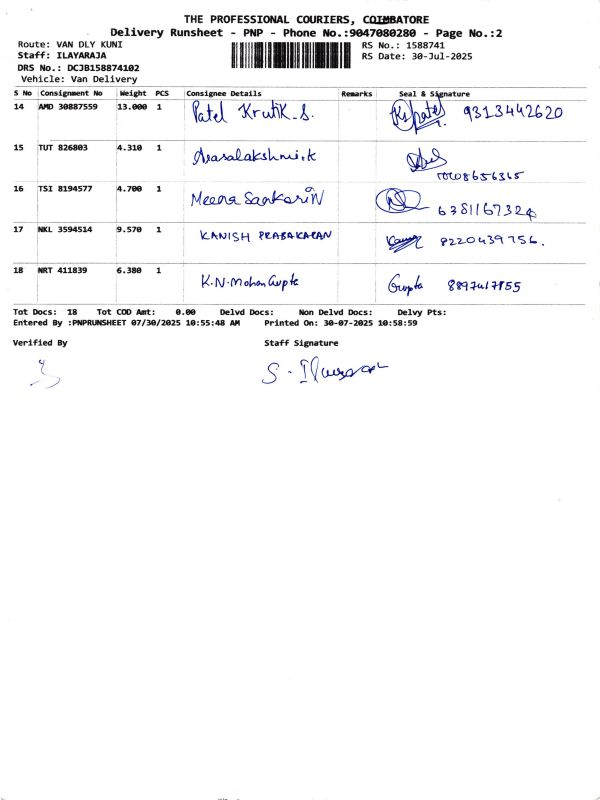 THE PROFESSIONAL COURIERS, COIMBATORE
Delivery Runsheet - PNP - Phone No.:9047080280 - Page No.:2
Route: VAN DLY KUNI
Staff: ILAYARAJA
DRS No.: DCJB158874102
Vehicle: Van Delivery
RS No.: 1588741
RS Date: 30-Jul-2025
S No Consignment No Weight PCS Consignee Details Remarks Seal & Signature
14 AMD 30887559 13.000 1 Patel Krutik.S. patel 9313442620
15 TUT 826803 4.310 1 Arasalakshmi.k
16 TSI 8194577 4.700 1 Meena Sankari N 6381167324
17 NKL 3594514 9.570 1 KANISH PRABAKARAN 8220439756.
18 NRT 411839 6.380 1 K.N.Mohan Gupta Gupta
Tot Docs: 18 Tot COD Amt: 0.00 Delvd Docs: Non Delvd Docs: Delvy Pts:
Entered By :PNPRUNSHEET 07/30/2025 10:55:48 AM Printed On: 30-07-2025 10:58:59
Verified By Staff Signature